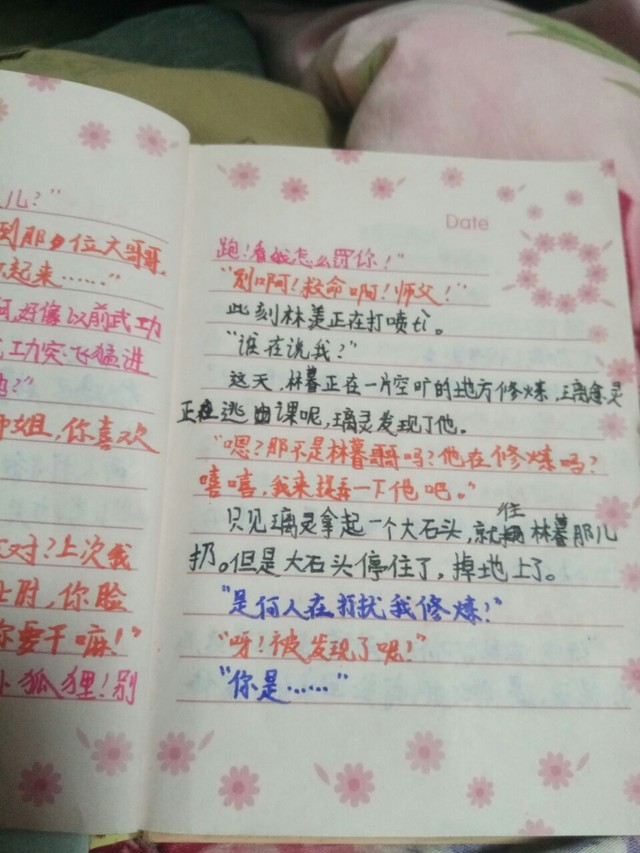 儿？"
到那位大哥哥，
起来……"
好像以前武功
工功突飞猛进
？"
姐，你喜欢
对？上次我
上时，你脸
你要干嘛！"
小狐狸！别
Date
跑！看我怎么罚你！"
"别啊！救命啊！师父！"
此刻林羡正在打喷ㄔ。
"谁在说我？"
这天，林暮正在一片空旷的地方修炼，璃灵
正在逃课呢，璃灵发现了他。
"嗯？那不是林暮哥哥吗？他在修炼吗？
嘻嘻，我来捉弄一下他吧。"
只见璃灵拿起一个大石头，就往林暮那儿
扔。但是大石头停住了，掉地上了。
"是何人在打扰我修炼！"
"呀！被发现了呢！"
"你是……"